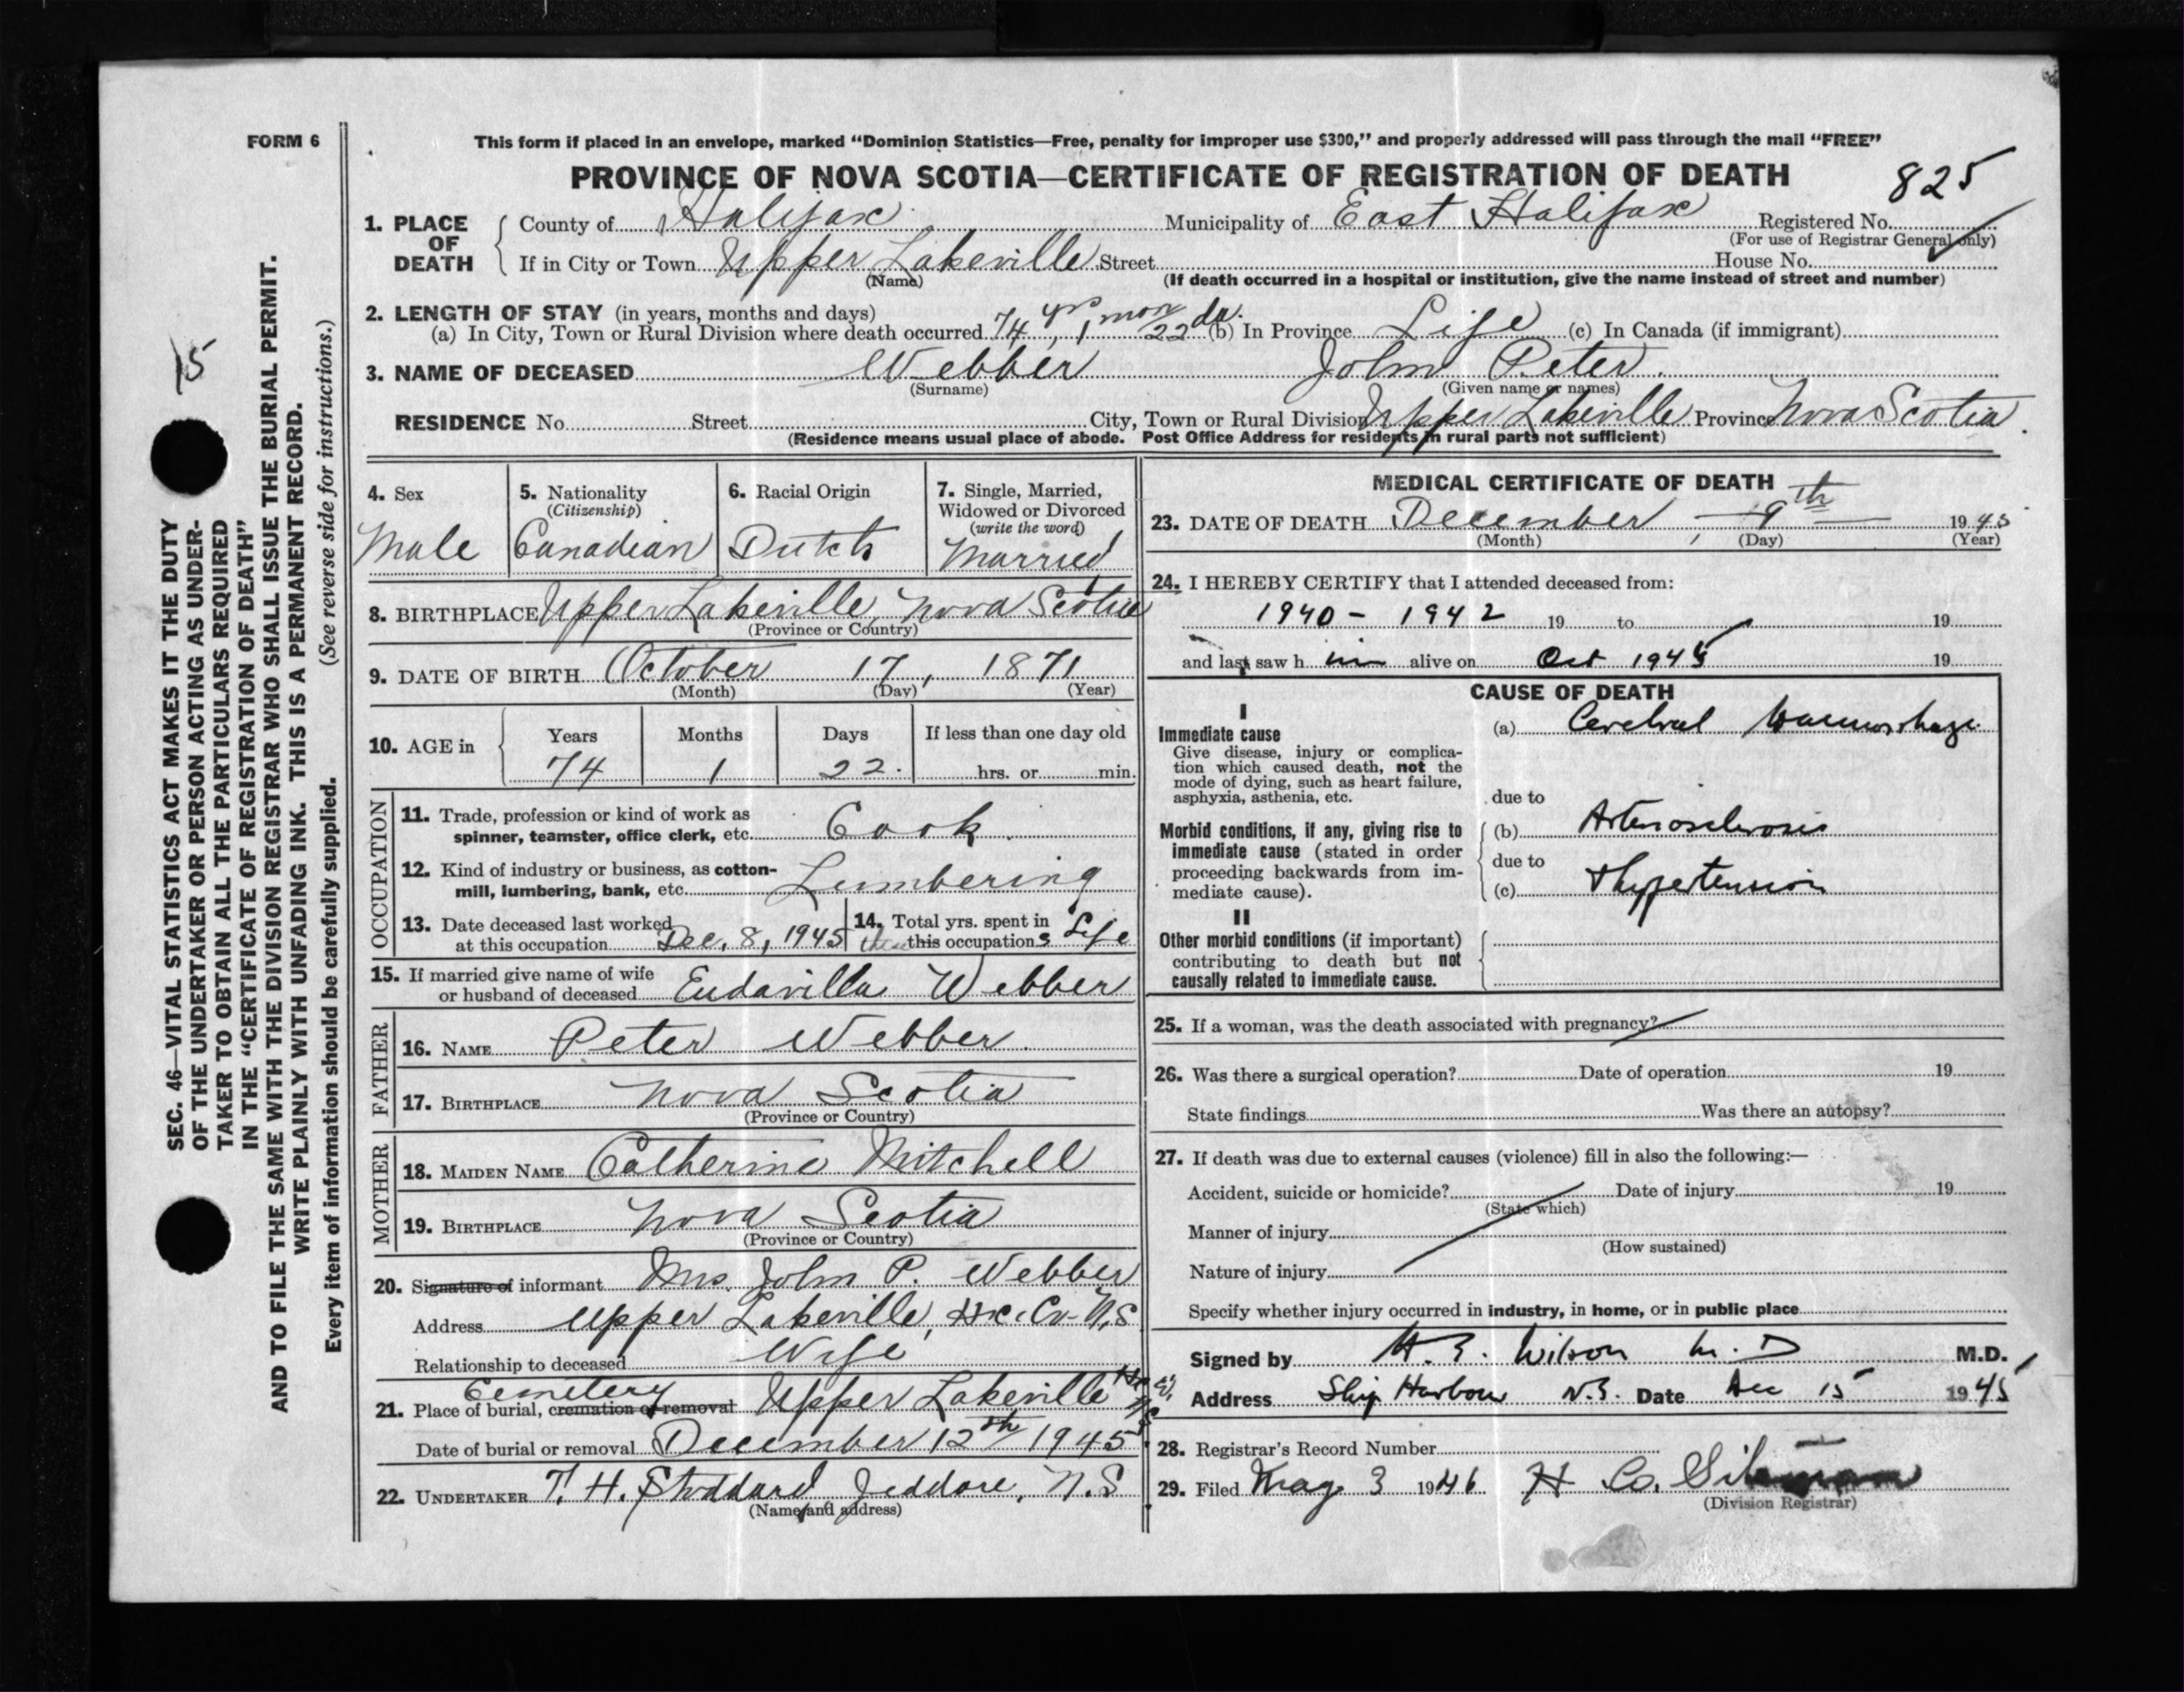 FORM 6
This form if placed in an envelope, marked “Dominion Statistics—Free, penalty for improper use $300,” and properly addressed will pass through the mail “FREE”
PROVINCE OF NOVA SCOTIA—CERTIFICATE OF REGISTRATION OF DEATH
825
1. PLACE OF DEATH
County of Halifax Municipality of East Halifax Registered No.
(For use of Registrar General only)
If in City or Town Upper Lakeville Street House No.
(Name) (If death occurred in a hospital or institution, give the name instead of street and number)
2. LENGTH OF STAY (in years, months and days)
(a) In City, Town or Rural Division where death occurred 74 yrs 1 mon 22 da. (b) In Province Life (c) In Canada (if immigrant)
3. NAME OF DECEASED Webber John Peter.
(Surname) (Given name or names)
RESIDENCE No. Street City, Town or Rural Division Upper Lakeville Province Nova Scotia.
(Residence means usual place of abode. Post Office Address for residents in rural parts not sufficient)
4. Sex
Male
5. Nationality
(Citizenship)
Canadian
6. Racial Origin
Dutch
7. Single, Married,
Widowed or Divorced
(write the word)
Married
8. BIRTHPLACE Upper Lakeville, Nova Scotia
(Province or Country)
9. DATE OF BIRTH October 17, 1871
(Month) (Day) (Year)
10. AGE in
Years Months Days If less than one day old
74 1 22. hrs. or min.
OCCUPATION
11. Trade, profession or kind of work as
spinner, teamster, office clerk, etc. Cook.
12. Kind of industry or business, as cotton-
mill, lumbering, bank, etc. Lumbering
13. Date deceased last worked
at this occupation Dec. 8, 1945
14. Total yrs. spent in
this occupations Life
15. If married give name of wife
or husband of deceased Eudavilla Webber
FATHER
16. NAME Peter Webber.
17. BIRTHPLACE Nova Scotia
(Province or Country)
MOTHER
18. MAIDEN NAME Catherine Mitchell
19. BIRTHPLACE Nova Scotia
(Province or Country)
20. Signature of informant Mrs. John P. Webber
Address Upper Lakeville, Hx. Co. N.S
Relationship to deceased Wife
Cemetery
21. Place of burial, cremation or removal Upper Lakeville
Date of burial or removal December 12th 1945
22. UNDERTAKER T. H. Stoddard Jeddore, N.S
(Name and address)
MEDICAL CERTIFICATE OF DEATH
23. DATE OF DEATH December 9th 1945
(Month) (Day) (Year)
24. I HEREBY CERTIFY that I attended deceased from:
1940 - 1942 19 to 19
and last saw h im alive on Oct 1945 19
CAUSE OF DEATH
I
Immediate cause
Give disease, injury or complica-
tion which caused death, not the
mode of dying, such as heart failure,
asphyxia, asthenia, etc.
(a) Cerebral Haemorrhage
due to
Morbid conditions, if any, giving rise to
immediate cause (stated in order
proceeding backwards from im-
mediate cause).
(b) Arteriosclerosis
due to
(c) Hypertension
II
Other morbid conditions (if important)
contributing to death but not
causally related to immediate cause.
25. If a woman, was the death associated with pregnancy?
26. Was there a surgical operation? Date of operation 19
State findings Was there an autopsy?
27. If death was due to external causes (violence) fill in also the following:—
Accident, suicide or homicide? Date of injury 19
(State which)
Manner of injury
(How sustained)
Nature of injury
Specify whether injury occurred in industry, in home, or in public place
Signed by H. E. Wilson M. D M.D.
Address Ship Harbour N.S. Date Dec 15 1945
28. Registrar's Record Number
29. Filed May 3 1946 H Co.
(Division Registrar)
15
SEC. 46—VITAL STATISTICS ACT MAKES IT THE DUTY
OF THE UNDERTAKER OR PERSON ACTING AS UNDER-
TAKER TO OBTAIN ALL THE PARTICULARS REQUIRED
IN THE “CERTIFICATE OF REGISTRATION OF DEATH”
AND TO FILE THE SAME WITH THE DIVISION REGISTRAR WHO SHALL ISSUE THE BURIAL PERMIT.
WRITE PLAINLY WITH UNFADING INK. THIS IS A PERMANENT RECORD.
Every item of information should be carefully supplied. (See reverse side for instructions.)